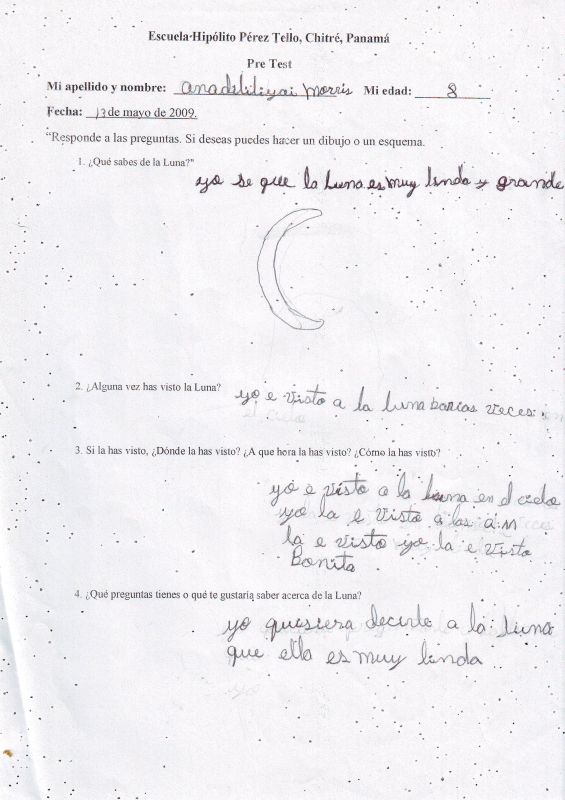 Escuela Hipólito Pérez Tello, Chitré, Panamá
Pre Test
Mi apellido y nombre: Morris Mi edad: 8
Fecha: 13 de mayo de 2009.
“Responde a las preguntas. Si deseas puedes hacer un dibujo o un esquema.
1. ¿Qué sabes de la Luna?"
yo se que la Luna es muy linda y grande
2. ¿Alguna vez has visto la Luna?
yo e visto a la luna barcas veces.
3. Si la has visto, ¿Dónde la has visto? ¿A que hora la has visto? ¿Cómo la has visto?
yo e visto a la luna en el cielo
yo la e visto a las a.m
la e visto yo la e visto
Bonita.
4. ¿Qué preguntas tienes o qué te gustaría saber acerca de la Luna?
yo quisiera decirle a la luna
que ella es muy linda